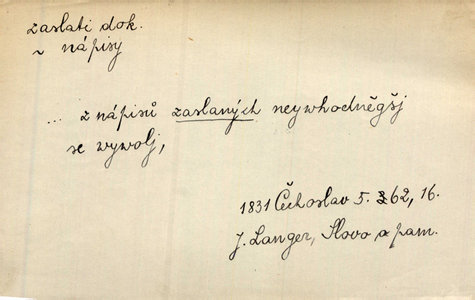 zaslati dok.
~ nápisy
... z nápisů zaslaných neywhodněgšj
se wywolj,
1831 Čechoslav 5. 362, 16.
J. Langer, Slovo a pam.